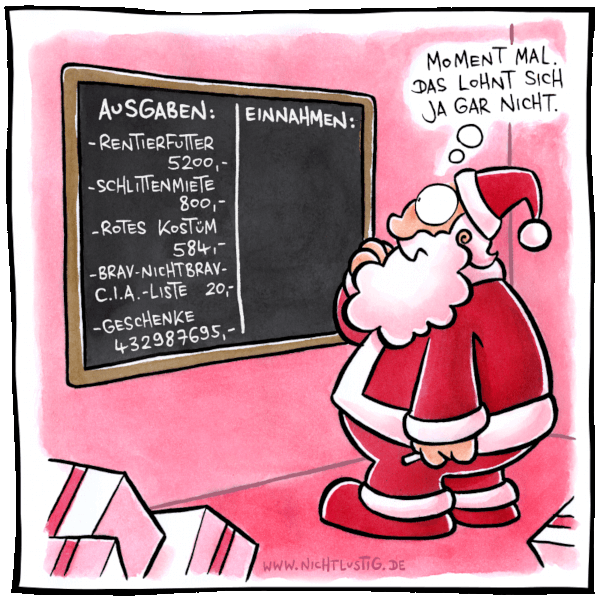 MOMENT MAL.
DAS LOHNT SICH
JA GAR NICHT.
AUSGABEN:
-RENTIERFUTTER
5200,-
-SCHLITTENMIETE
800,-
-ROTES KOSTÜM
584,-
-BRAV-NICHTBRAV-
C.I.A.-LISTE 20,-
-GESCHENKE
432987695,-
EINNAHMEN:
WWW.NICHTLUSTIG.DE